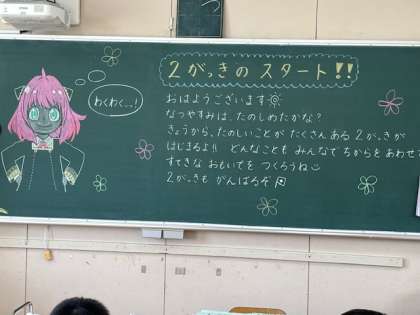 わくわく…!
2がっきの スタート!!
おはようございます
なつやすみは、たのしめたかな?
きょうから、たのしいことが たくさん ある 2がっきが
はじまるよ!! どんなことも みんなで ちからをあわせて
すてきな おもいでを つくろうね
2がっきも がんばるぞ